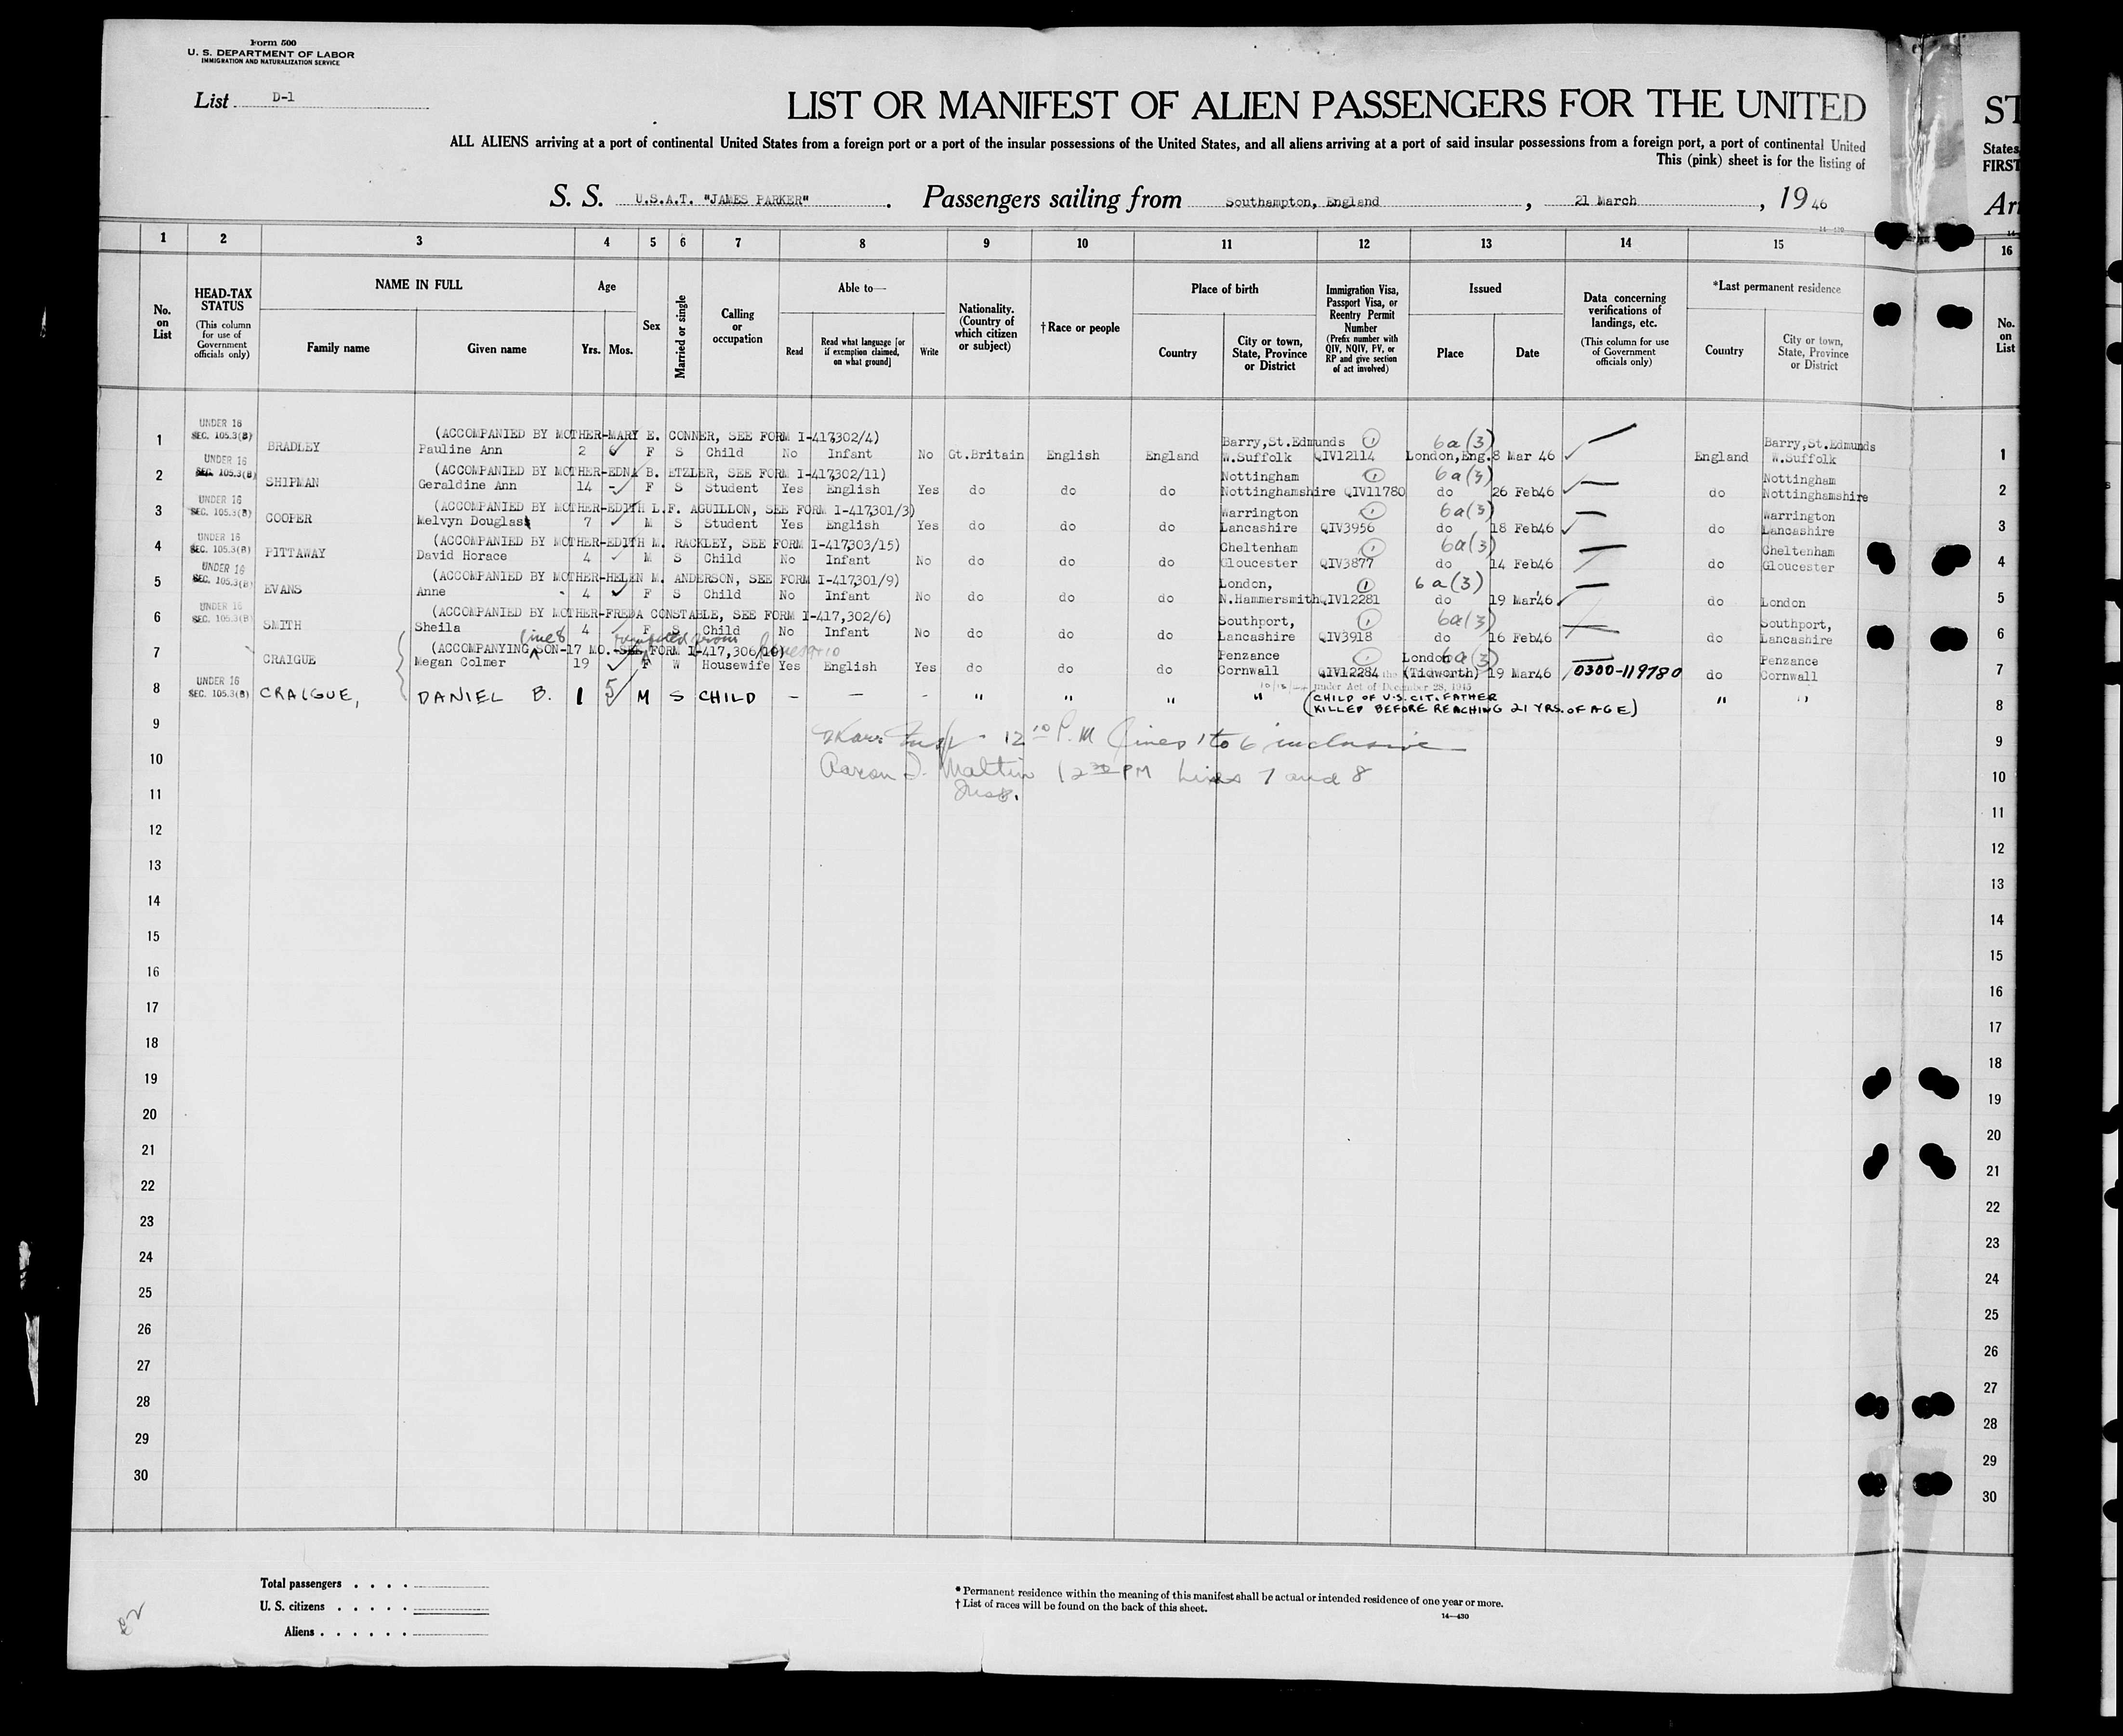 Form 500
U. S. DEPARTMENT OF LABOR
IMMIGRATION AND NATURALIZATION SERVICE
List D-1
LIST OR MANIFEST OF ALIEN PASSENGERS FOR THE UNITED ST
ALL ALIENS arriving at a port of continental United States from a foreign port or a port of the insular possessions of the United States, and all aliens arriving at a port of said insular possessions from a foreign port, a port of continental United States,
This (pink) sheet is for the listing of FIRST
S. S. U.S.A.T. "JAMES PARKER" . Passengers sailing from Southampton, England , 21 March , 19 46
1 2 3 4 5 6 7 8 9 10 11 12 13 14 15 16
No. on List
HEAD-TAX STATUS
(This column for use of Government officials only)
NAME IN FULL
Family name
Given name
Age
Yrs. Mos.
Sex
Married or single
Calling or occupation
Able to—
Read
Read what language [or if exemption claimed, on what ground]
Write
Nationality. (Country of which citizen or subject)
† Race or people
Place of birth
Country
City or town, State, Province or District
Immigration Visa, Passport Visa, or Reentry Permit Number
(Prefix number with QIV, NQIV, PV, or RP and give section of act involved)
Issued
Place
Date
Data concerning verifications of landings, etc.
(This column for use of Government officials only)
*Last permanent residence
Country
City or town, State, Province or District
No. on List
UNDER 16 (ACCOMPANIED BY MOTHER-MARY E. CONNER, SEE FORM I-417,302/4) Barry,St.Edmunds 1 6a(3) Barry,St.Edmunds
1 SEC. 105.3(B) BRADLEY Pauline Ann 2 6 F S Child No Infant No Gt.Britain English England W.Suffolk QIV12114 London,Eng. 8 Mar 46 England W.Suffolk 1
UNDER 16 (ACCOMPANIED BY MOTHER-EDNA B. ETZLER, SEE FORM I-417,302/11) Nottingham 1 6a(3) Nottingham
2 SEC. 105.3(B) SHIPMAN Geraldine Ann 14 - F S Student Yes English Yes do do do Nottinghamshire QIV11780 do 26 Feb46 do Nottinghamshire 2
UNDER 16 (ACCOMPANIED BY MOTHER-EDITH L.F. AGUILLON, SEE FORM I-417,301/3) Warrington 1 6a(3) Warrington
3 SEC. 105.3(B) COOPER Melvyn Douglas 7 M S Student Yes English Yes do do do Lancashire QIV3956 do 18 Feb46 do Lancashire 3
UNDER 16 (ACCOMPANIED BY MOTHER-EDITH M. RACKLEY, SEE FORM I-417,303/15) Cheltenham 1 6a(3) Cheltenham
4 SEC. 105.3(B) PITTAWAY David Horace 4 M S Child No Infant No do do do Gloucester QIV3877 do 14 Feb46 do Gloucester 4
UNDER 16 (ACCOMPANIED BY MOTHER-HELEN M. ANDERSON, SEE FORM I-417,301/9) London, 1 6a(3)
5 SEC. 105.3(B) EVANS Anne 4 F S Child No Infant No do do do N.Hammersmith QIV12281 do 19 Mar46 do London 5
UNDER 16 (ACCOMPANIED BY MOTHER-FREDA CONSTABLE, SEE FORM I-417,302/6) Southport, 1 6a(3) Southport,
6 SEC. 105.3(B) SMITH Sheila 4 F S Child No Infant No do do do Lancashire QIV3918 do 16 Feb46 do Lancashire 6
line 8
(ACCOMPANYING SON-17 MO.-SEE FORM I-417,306/10) Penzance London 6a(3) Penzance
7 CRAIGUE Megan Colmer 19 F W Housewife Yes English Yes do do do Cornwall QIV12284 (Tidworth) 19 Mar46 0300-119780 do Cornwall 7
under Act of December 28, 1945
UNDER 16
8 SEC. 105.3(B) CRAIGUE, DANIEL B. 1 5 M S CHILD - - - " " " " (CHILD OF U.S. CIT. FATHER " " 8
KILLED BEFORE REACHING 21 YRS. OF AGE)
12 10 P.M lines 1 to 6 inclusive
Aaron Maltin 12 30 PM Lines 7 and 8
Insp.
9 9
10 10
11 11
12 12
13 13
14 14
15 15
16 16
17 17
18 18
19 19
20 20
21 21
22 22
23 23
24 24
25 25
26 26
27 27
28 28
29 29
30 30
Total passengers . . . .
U. S. citizens . . . . .
Aliens . . . . . .
* Permanent residence within the meaning of this manifest shall be actual or intended residence of one year or more.
† List of races will be found on the back of this sheet.
14—430